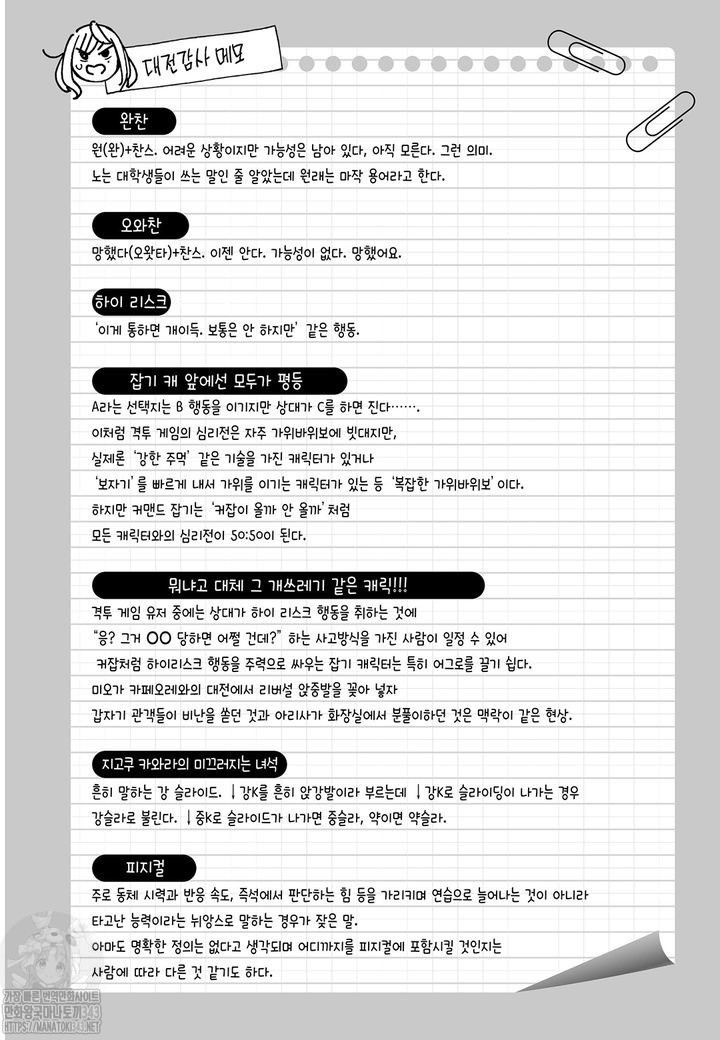 대전감사 메모
완찬
원(완)+찬스. 어려운 상황이지만 가능성은 남아 있다, 아직 모른다. 그런 의미.
노는 대학생들이 쓰는 말인 줄 알았는데 원래는 마작 용어라고 한다.
오와찬
망했다(오왓타)+찬스. 이젠 안다. 가능성이 없다. 망했어요.
하이 리스크
‘이게 통하면 개이득. 보통은 안 하지만’ 같은 행동.
잡기 캐 앞에선 모두가 평등
A라는 선택지는 B 행동을 이기지만 상대가 C를 하면 진다…….
이처럼 격투 게임의 심리전은 자주 가위바위보에 빗대지만,
실제론 ‘강한 주먹’ 같은 기술을 가진 캐릭터가 있거나
‘보자기’를 빠르게 내서 가위를 이기는 캐릭터가 있는 등 ‘복잡한 가위바위보’이다.
하지만 커맨드 잡기는 ‘커잡이 올까 안 올까’처럼
모든 캐릭터와의 심리전이 50:50이 된다.
뭐냐고 대체 그 개쓰레기 같은 캐릭!!!
격투 게임 유저 중에는 상대가 하이 리스크 행동을 취하는 것에
“응? 그거 ○○ 당하면 어쩔 건데?” 하는 사고방식을 가진 사람이 일정 수 있어
커잡처럼 하이리스크 행동을 주력으로 싸우는 잡기 캐릭터는 특히 어그로를 끌기 쉽다.
미오가 카페오레와의 대전에서 리버설 앉중발을 꽂아 넣자
갑자기 관객들이 비난을 쏟던 것과 아리사가 화장실에서 분풀이하던 것은 맥락이 같은 현상.
지고쿠 카와라의 미끄러지는 녀석
흔히 말하는 강 슬라이드. ↓강K를 흔히 앉강발이라 부르는데 ↓강K로 슬라이딩이 나가는 경우
강슬라로 불린다. ↓중K로 슬라이드가 나가면 중슬라, 약이면 약슬라.
피지컬
주로 동체 시력과 반응 속도, 즉석에서 판단하는 힘 등을 가리키며 연습으로 늘어나는 것이 아니라
타고난 능력이라는 뉘앙스로 말하는 경우가 잦은 말.
아마도 명확한 정의는 없다고 생각되며 어디까지를 피지컬에 포함시킬 것인지는
사람에 따라 다른 것 같기도 하다.
가장 빠른 번역만화사이트
만화왕국마나토끼343
HTTPS://MANATOKI343.NET